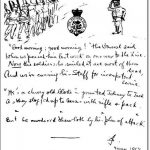 "Good morning; good morning!" the General said
When we passed him last week on our way to the Line.
Now the soldiers he smiled at are most of 'em dead
And we're cursing his Staff for incompetent
swine
"He's a cheery old grunted to Jack
As they up to Arras with rifle & pack
But he murdered them both by his plan of attack.